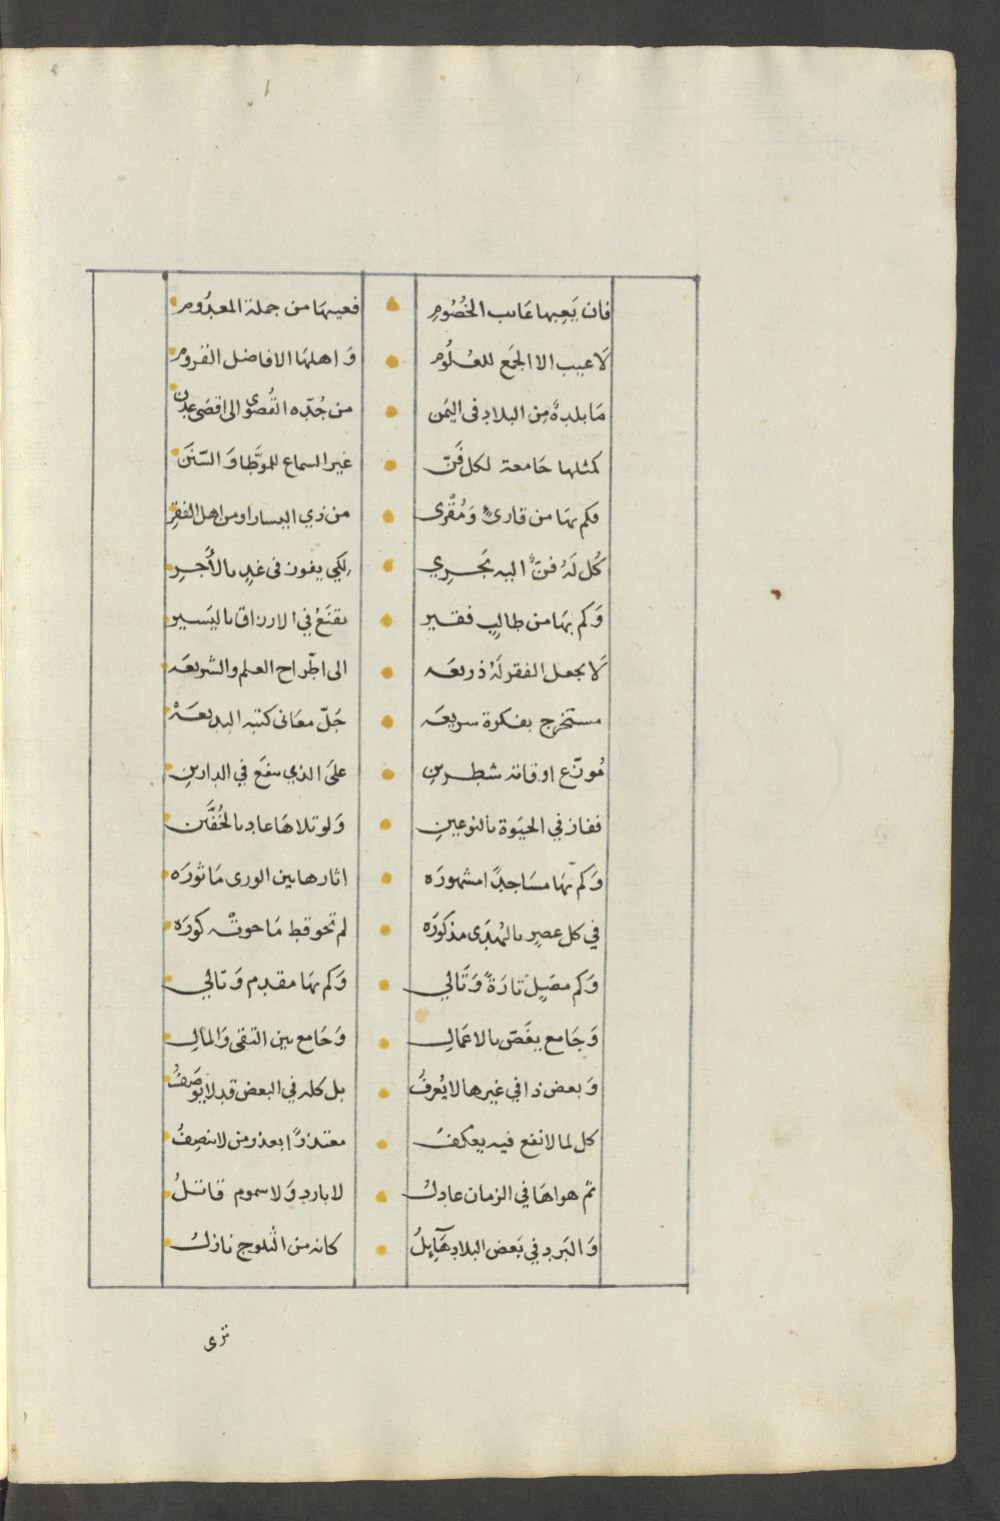 فان يَعِبها عَائب الخُصُومِ • فعيبهَا من جملة المعدُوم
لَا عيب الا الجَمع للعُلُوم • وَاهلهَا الافاضل القروم
مَا بلدةٌ مِن البلادِ في اليَمن • من جُدّه القُصوى الى اقصَى عدن
كمثلها جَامعة لكل فَنّ • غير السماع للموطَّا وَ السّنَن
فكم بهَا من قارئٍ وَمُقْرى • من ذي اليسار او من اهل الفقرِ
كُل لَهُ فنٌّ اليه يَجري • لِكي يفوز في غدٍ بالأَجرِ
وَكم بهَا من طالبٍ فقير • يقنَعُ في الارزاق باليَسير
لَا يجعل الفقر لَهُ ذريعَه • الى اطّراح العلم والشريعَه
مستخرج بفكرة سريعَه • جَلّ معَانى كتبه البديعَهْ
مُوزّع اوقاته شطرينِ • علَى الذي ينفَع في الدارينِ
ففاز في الحيَوة بالنوعينِ • وَلو تلاهَا عاد بالخُفَّين
وَكم بهَا مسَاجدًا مشهورَه • اثارها بين الورى مَاثورَه
في كل عصرٍ بالهُدَى مذكورَه • لم تحو قط مَا حوتْه كورَه
وَكم مصَلٍّ تارَةً وَتَالي • وَكم بهَا مقدم وَتالي
وَجَامع يغَصّ بالاعمَالِ • وَجَامع بين التقى وَالمالِ
وَبعض ذا في غيرها لا يُعرفُ • بل كله في البعض قد لا يوصَفُ
كل لما لا نفع فيه يعكفُ • معتذرًا بعذر من لا ينصِفُ
ثم هواهَا في الزمان عادلُ • لا باردٍ وَلا سموم قاتلُ
وَالبَرد في بَعض البلاد هَآئِلُ • كانه من الثلوج نازلُ
ترى